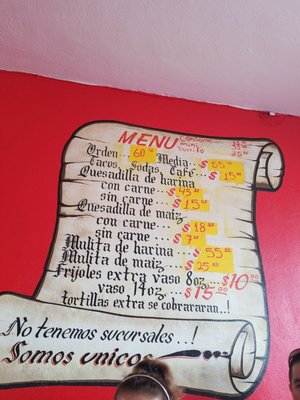 MENU
Consome
mini
burrito
Orden... 60.00 Media... $55.00
Tacos, Sodas, Cafe... $15.00
Quesadilla de harina
con carne... $45.00
sin carne... $15.00
Quesadilla de maiz
con carne... $18.00
sin carne... $7.00
Mulita de harina... $55.00
Mulita de maiz... $25.00
Frijoles extra vaso 8oz... $10.00
vaso 14oz... $15.00
tortillas extra se cobraran..!
No tenemos sucursales..!
Somos unicos